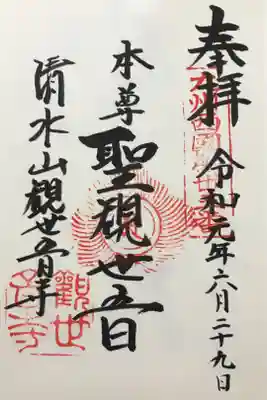 奉拝
令和元年六月二十九日
本尊
聖観世音
清水山観世音寺
観世音寺